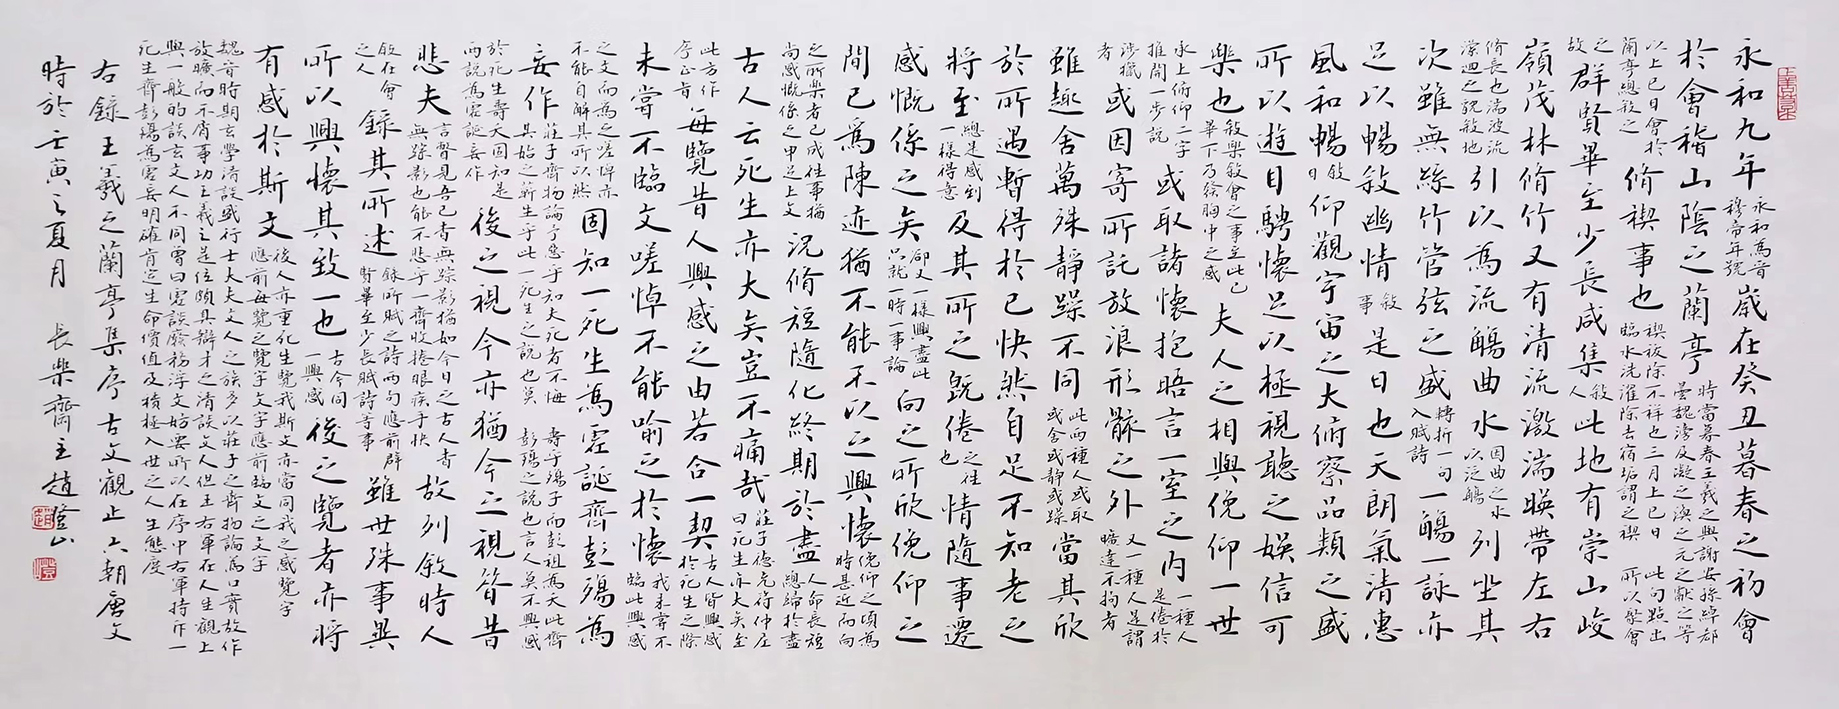 永和九年永和為晉穆帝年號歲在癸丑暮春之初會
於會稽山陰之蘭亭時當暮春王羲之與謝安孫綽郗曇魏滂及凝之渙之元之獻之等
以上巳日會於蘭亭總敘之脩禊事也禊祓除不祥也三月上巳日臨水洗濯除去宿垢謂之禊此句點出所以聚會
之故群賢畢至少長咸集敘人此地有崇山峻
嶺茂林脩竹又有清流激湍暎帶左右
脩長也湍波流瀠迴之貌敘地引以為流觴曲水因曲之水以泛觴列坐其
次雖無絲竹管弦之盛轉折一句入賦詩一觴一詠亦
足以暢敘幽情敘事是日也天朗氣清惠
風和暢敘日仰觀宇宙之大俯察品類之盛
所以遊目騁懷足以極視聽之娛信可
樂也敘樂敘會之事至此已畢下乃發胸中之感夫人之相與俛仰一世
承上俯仰二字推開一步說或取諸懷抱晤言一室之內一種人是倦於
涉獵者或因寄所託放浪形骸之外又一種人是謂曠達不拘者
雖趣舍萬殊靜躁不同此兩種人或取或舍或靜或躁當其欣
於所遇暫得於已快然自足不知老之
將至總是感到一樣得意及其所之既倦之往也情隨事遷
感慨係之矣卻又一樣興盡此只就一時一事論向之所欣俛仰之
間已為陳迹猶不能不以之興懷俛仰之頃為時甚近而向
之所樂者已成往事猶尚感慨係之申足上文況脩短隨化終期於盡人命長短總歸於盡
古人云死生亦大矣豈不痛哉莊子德充符仲尼曰死生亦大矣至
此方作序正旨每覽昔人興感之由若合一契古人皆興感於死生之際
未嘗不臨文嗟悼不能喻之於懷我未嘗不臨此興感
之文而為之嗟悼亦不能自解其所以然固知一死生為虛誕齊彭殤為
妄作莊子齊物論予惡乎知夫死者不悔其始之蘄生乎此一死生之說也莫壽乎殤子而彭祖為夭此齊彭殤之說也言人莫不興感
於死生壽夭固知是兩說為虛誕妄作後之視今亦猶今之視昔
悲夫言瞥見吾已杳無蹤影猶如今日之古人杳無蹤影也能不悲乎一齊收捲眼疾手快故列敘時人
敘在會之人錄其所述錄所賦之詩兩句應前群賢畢至少長賦詩等事雖世殊事異
所以興懷其致一也古今同一興感後之覽者亦將
有感於斯文後人亦重死生覽我斯文亦當同我之感覽字應前每覽之覽字文字應前臨文之文字
魏晉時期玄學清談盛行士大夫文人之族多以莊子之齊物論為口實故作
放曠而不屑事功王羲之是位頗具辯才之清談文人但王右軍在人生觀上
與一般的談玄文人不同曾曰虛談廢務浮文妨要所以在序中右軍持斥一
死生齊彭殤為虛妄明確肯定生命價值及積極入世之人生態度
右錄王羲之蘭亭集序古文觀止六朝唐文
時於壬寅之夏月 長樂齋主趙